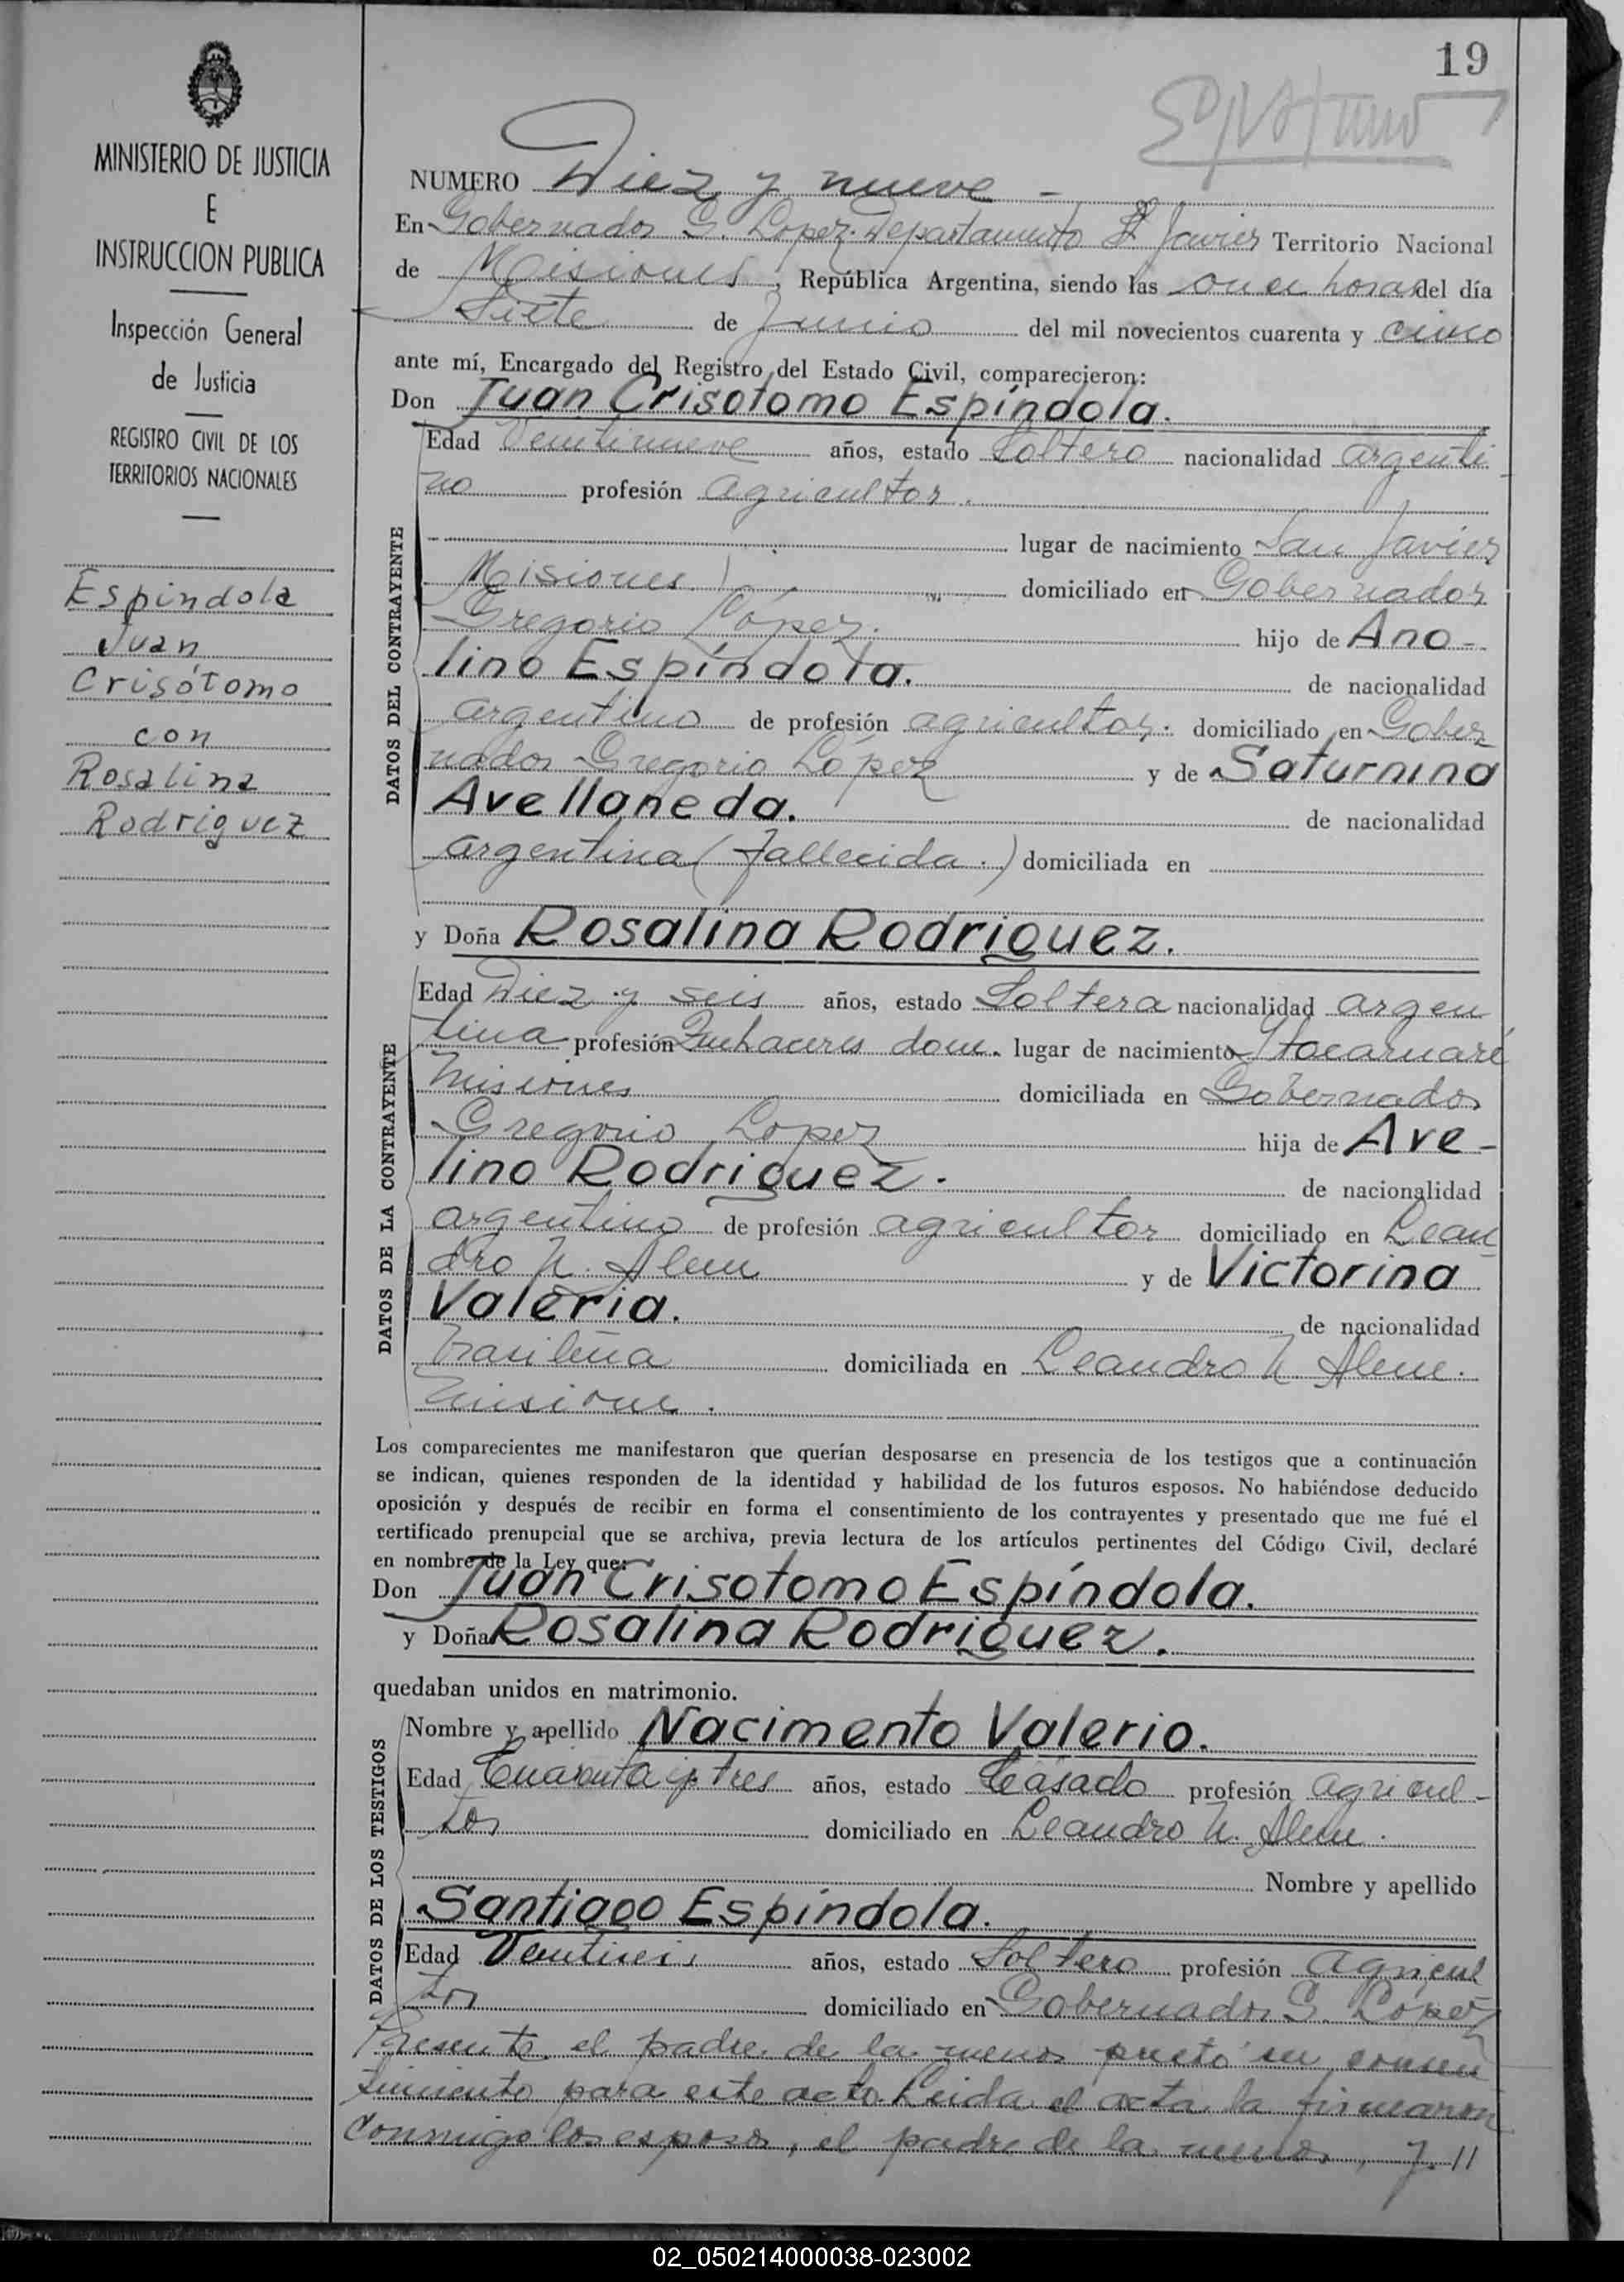 19
MINISTERIO DE JUSTICIA
E
INSTRUCCION PUBLICA
Inspección General
de Justicia
REGISTRO CIVIL DE LOS
TERRITORIOS NACIONALES
Espindola
Juan
Crisótomo
con
Rosalina
Rodriguez
NUMERO Diez y nueve -
En Gobernador G. Lopez. Departamento S. Javier Territorio Nacional
de Misiones, República Argentina, siendo las once horas del día
Siete de Junio del mil novecientos cuarenta y cinco
ante mí, Encargado del Registro del Estado Civil, comparecieron:
Don Juan Crisotomo Espíndola.
DATOS DEL CONTRAYENTE
Edad Veintinueve años, estado Soltero nacionalidad argenti
no profesión agricultor.
lugar de nacimiento San Javier
Misiones domiciliado en Gobernador
Gregorio López. hijo de Ano-
lino Espíndola. de nacionalidad
argentino de profesión agricultor. domiciliado en Gober
nador Gregorio López y de Saturnina
Avellaneda. de nacionalidad
argentina (fallecida.) domiciliada en
y Doña Rosalina Rodriguez.
DATOS DE LA CONTRAYENTE
Edad Diez y seis años, estado Soltera nacionalidad argen
tina profesión Quehaceres dom. lugar de nacimiento Itacaruaré
Misiones domiciliada en Gobernador
Gregorio Lopez hija de Ave-
lino Rodriguez. de nacionalidad
argentino de profesión agricultor domiciliado en Lean
dro N. Alem y de Victorina
Valeria. de nacionalidad
brasileña domiciliada en Leandro N. Alem.
Misiones.
Los comparecientes me manifestaron que querían desposarse en presencia de los testigos que a continuación
se indican, quienes responden de la identidad y habilidad de los futuros esposos. No habiéndose deducido
oposición y después de recibir en forma el consentimiento de los contrayentes y presentado que me fué el
certificado prenupcial que se archiva, previa lectura de los artículos pertinentes del Código Civil, declaré
en nombre de la Ley que:
Don Juan Crisotomo Espíndola.
y Doña Rosalina Rodriguez.
quedaban unidos en matrimonio.
DATOS DE LOS TESTIGOS
Nombre y apellido Nacimento Valerio.
Edad Cuarenta y tres años, estado Casado profesión agricul-
tor domiciliado en Leandro N. Alem.
Nombre y apellido
Santiago Espíndola.
Edad Veintiseis años, estado Soltero profesión agricul
tor domiciliado en Gobernador G. López
Presente el padre de la menor prestó su consen
timiento para este acto. Leida el acta la firmaron
conmigo los esposos, el padre de la menor, y.//
02_050214000038-023002